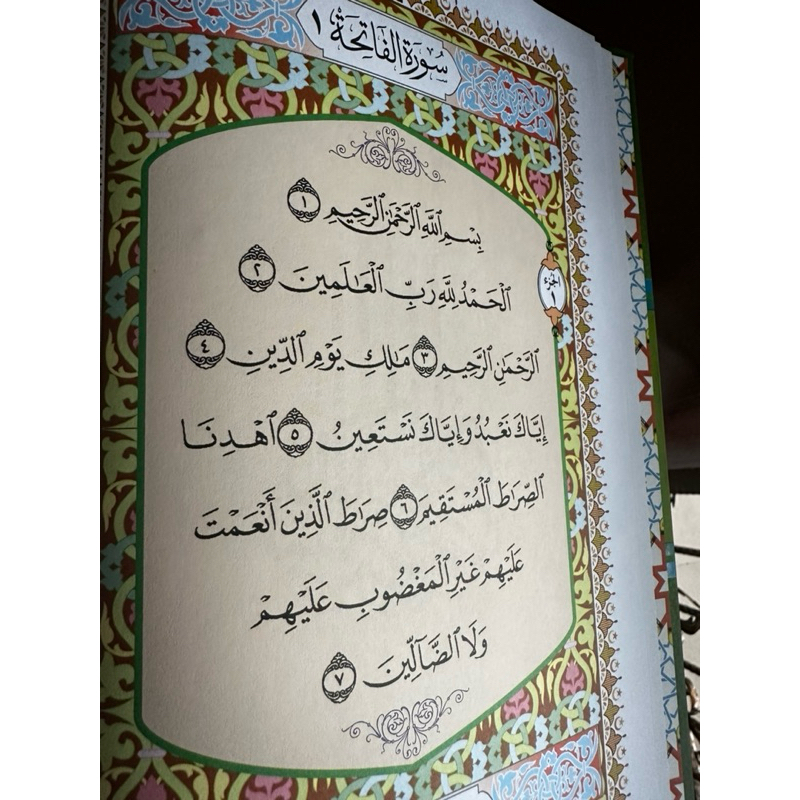 سُورَةُ الفَاتِحَةِ ١
بِسْمِ ٱللَّهِ ٱلرَّحْمَٰنِ ٱلرَّحِيمِ ١
ٱلْحَمْدُ لِلَّهِ رَبِّ ٱلْعَٰلَمِينَ ٢
ٱلرَّحْمَٰنِ ٱلرَّحِيمِ ٣ مَٰلِكِ يَوْمِ ٱلدِّينِ ٤
إِيَّاكَ نَعْبُدُ وَإِيَّاكَ نَسْتَعِينُ ٥ ٱهْدِنَا
ٱلصِّرَٰطَ ٱلْمُسْتَقِيمَ ٦ صِرَٰطَ ٱلَّذِينَ أَنْعَمْتَ
عَلَيْهِمْ غَيْرِ ٱلْمَغْضُوبِ عَلَيْهِمْ
وَلَا ٱلضَّآلِّينَ ٧
الجزء
١